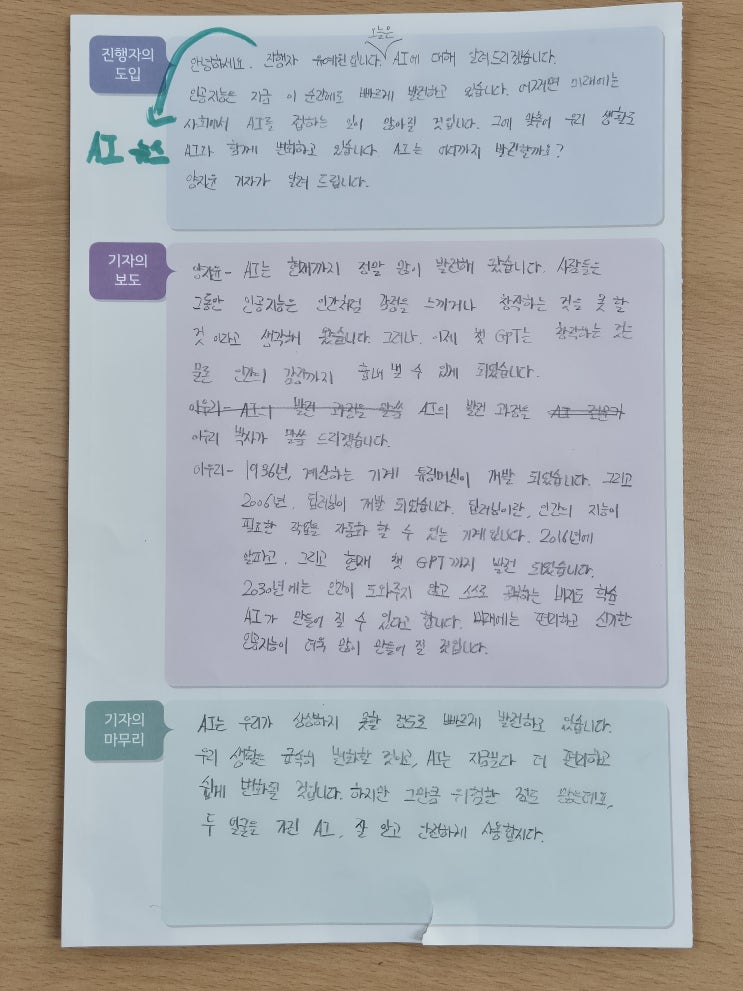 진행자의
도입
오늘은
안녕하세요. 진행자 유예린입니다. AI에 대해 알려드리겠습니다.
인공지능은 지금 이 순간에도 빠르게 발전하고 있습니다. 어쩌면 미래에는
사회에서 AI를 접하는 일이 많아질 것입니다. 그에 맞추어 우리 생활도
AI 뉴스
AI와 함께 변화하고 있습니다. AI는 어디까지 발전할까요?
양지윤 기자가 알려 드립니다.
기자의
보도
양지윤- AI는 현재까지 정말 많이 발전해 왔습니다. 사람들은
그동안 인공지능은 인간처럼 감정을 느끼거나 창작하는 것을 못 할
것 이라고 생각해 왔습니다. 그러나, 이제 챗 GPT는 창작하는 것은
물론 인간의 감정까지 흉내 낼 수 있게 되었습니다.
AI의 발전 과정을 AI의 발전 과정을
이우리 박사가 말씀 드리겠습니다.
이우리- 1936년, 계산하는 기계! 튜링머신이 개발 되었습니다. 그리고
2006년, 딥러닝이 개발 되었습니다. 딥러닝이란, 인간의 지능이
필요한 작업을 자동화 할 수 있는 기계입니다. 2016년에
알파고, 그리고 현재 챗 GPT까지 발전 되었습니다.
2030년에는 인간이 도와주지 않고 스스로 공부하는 비지도 학습
AI가 만들어 질 수 있다고 합니다. 미래에는 편리하고 신기한
인공지능이 더욱 많이 만들어 질 것입니다.
기자의
마무리
AI는 우리가 상상하지 못할 정도로 빠르게 발전하고 있습니다.
우리 생활은 급속히 변화할 것이고, AI는 지금보다 더 편리하고
쉽게 변화될 것입니다. 하지만 그만큼 위험한 점도 많은데요,
두 얼굴을 가진 AI, 잘 알고 안전하게 사용합시다.